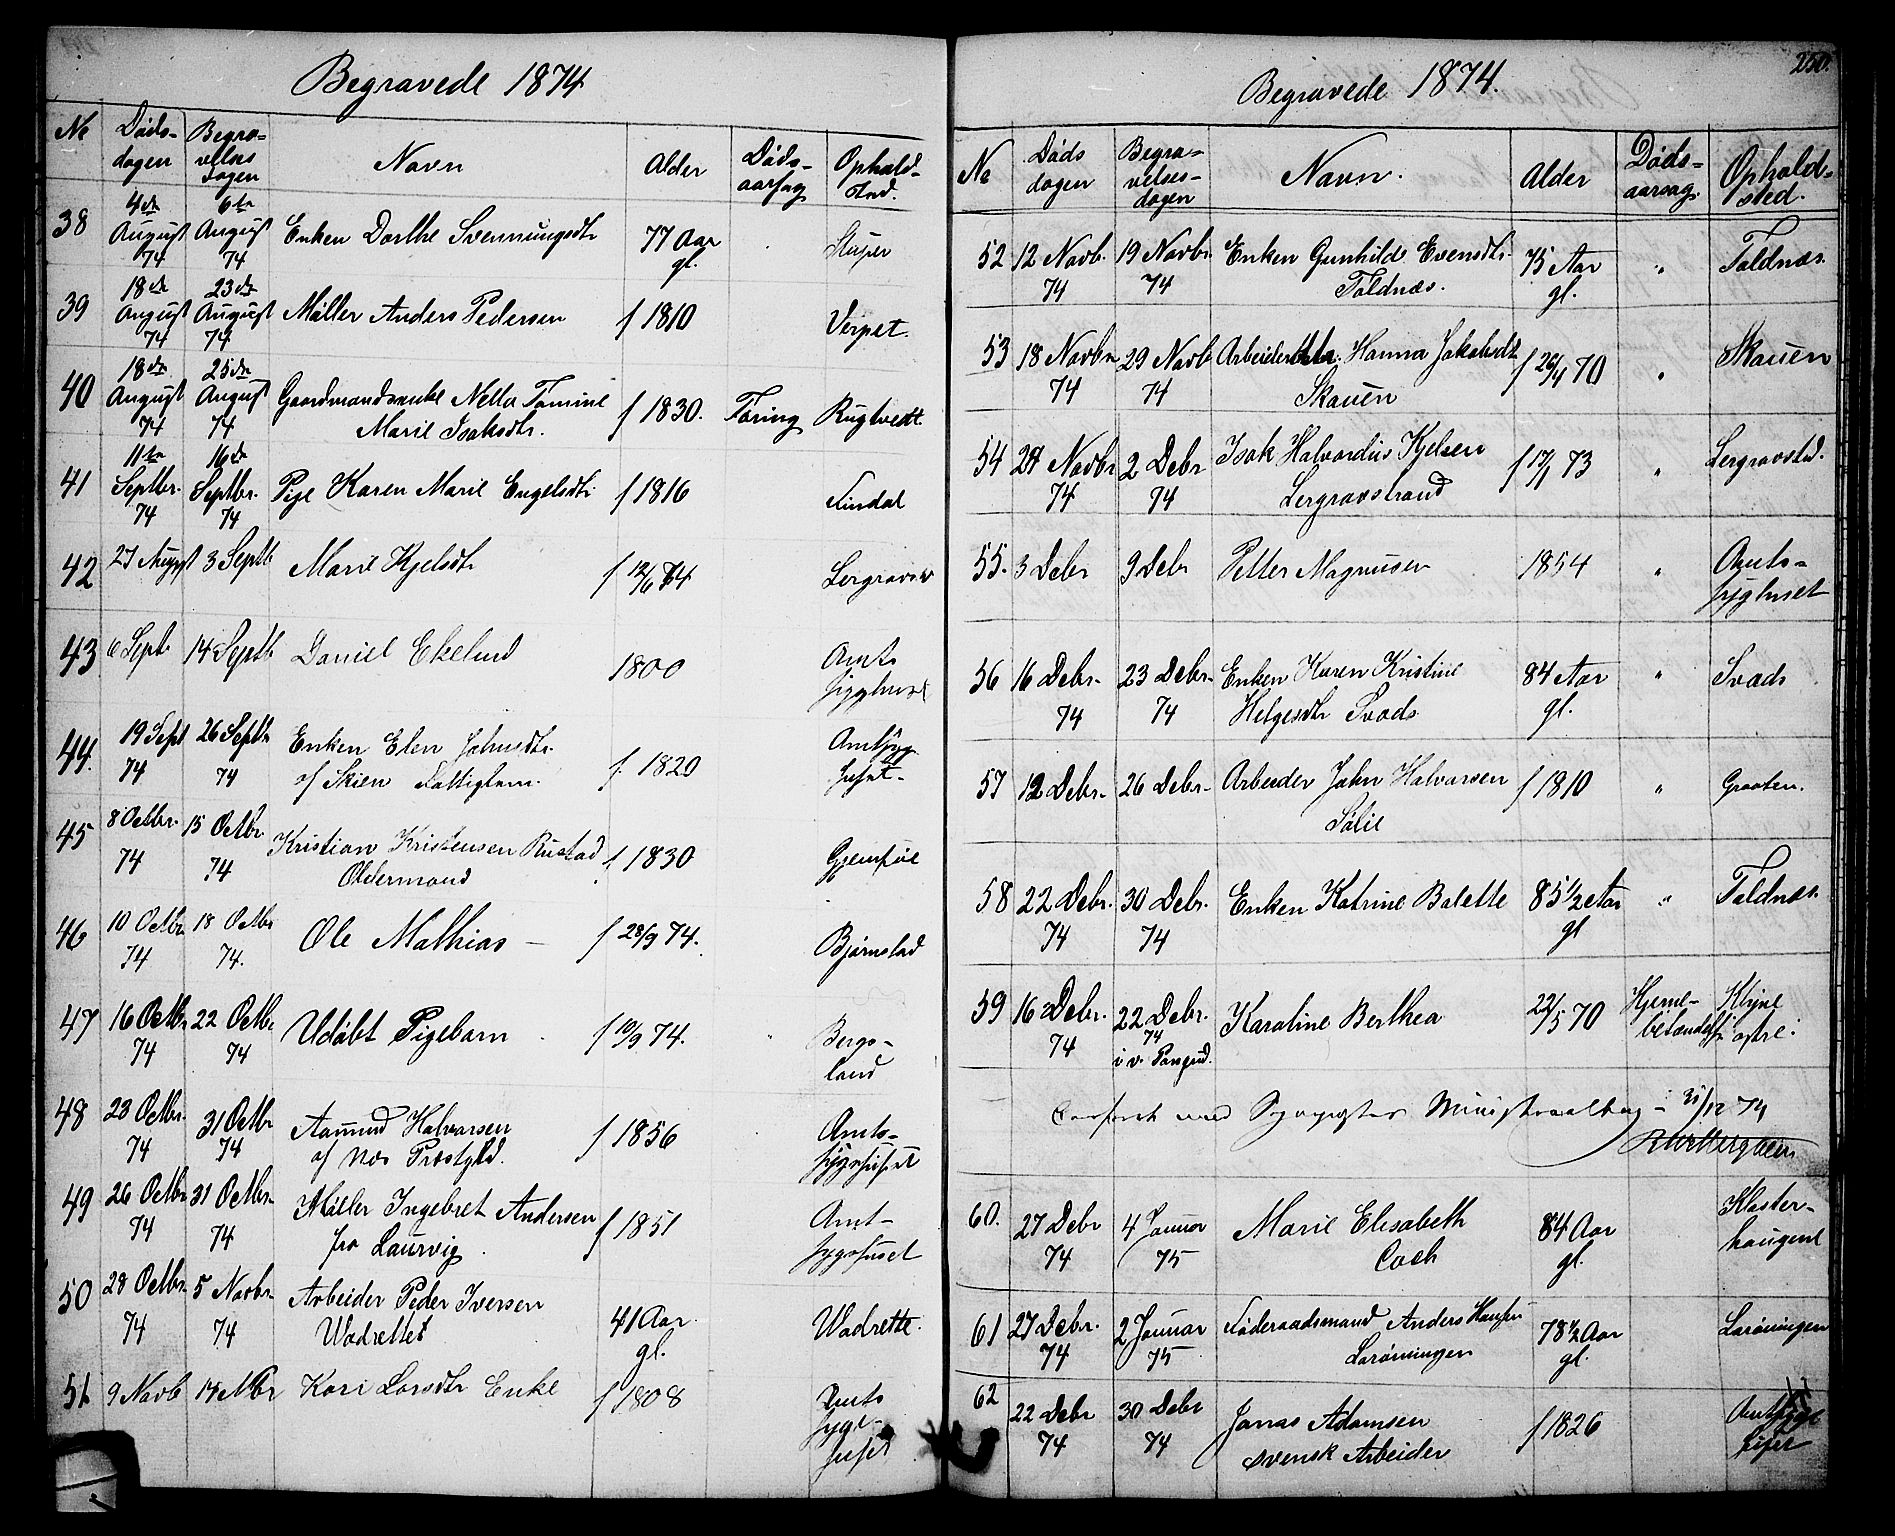 Begravede 1874
No
Døds-
dagen
Begra-
velses
dagen
Navn
Alder
Døds-
aarsag
Opholds-
sted.
38
4de
August
74
6te
August
74
Enken Dorthe Svenningsdtr
77 Aar
gl.
39
18de
August
74
23de
August
74
Møller Anders Pedersen
f 1810
Verpet.
40
18de
August
74
25de
August
74
Gaardmandsenke Nella Tomine
Marie Isaksdtr.
f 1830.
Tæring
Rugtvedt.
41
11te
Septbr.
74
16de
Septbr.
74
Pige Karen Marie Engelsdtr
f 1816
Findal
42
27 August
3 Septb
Marie Kjelsdtr
f 12/6 74
Lergravsv
43
6 Sept
14 Septb
Daniel Ekelund
1800
Amts
sygehuset
44.
19 Sept
74
26 Septbr
74
Enken Elen Johnsdtr
af Skien Fattiglem.
f. 1820
Amtsyge
huset-
45
8 Octbr.
74
15 Octbr
74
Kristian Kristensen Rustad
Oldermand
f. 1830
46
10 Octbr
74
18 Octbr
74.
Ole Mathias -
f 28/9 74.
Bjørnstad
47
16 Octbr
74
22 Octbr
74
Udøbt Pigebarn
f 10/9 74.
Bergs-
land
48
23 Octbr.
74
31 Octbr
74
Aamund Halvorsen
af Næs Præstgjeld.
f 1856
Amts-
sygehuset
49
26 Octbr
74
31 Octbr-
74
Møller Ingebret Andersen
fra Laurvig
f 1851
Amt-
sygehuset
50
28 Octbr-
74
5 Novbr-
74
Arbeider Peder Iversen
Wadrettet
41 Aar.
gl.
Wadrette.
51
9 Novb
14 Nbr
Kari Larsdtr Enke
f 1808
Amts
syge-
huset
Begravede 1874.
250.
No
Døds
dagen
Begra-
velses-
dagen
Navn.
Alder
Døds-
aarsag.
Ophold-
sted.
52
12 Novb.
74
19 Novbr.
74
Enken Gunhilde Evensdtr.
Toldnæs.
75 Aar
gl.
"
Toldnæs.
53
18 Novbr
74
29 Novb
74
Hanna Jakobsdtr
Skauen
f 26/4 70
"
Skauen
54
24 Novbr
74
2 Debr
74
Isak Halvordus Kjelsen
Lergravstrand
f 17/1 73
"
Lergravstd.
55.
3 Debr
9 Debr
Petter Magnusen
1854
"
Amts-
syghuset
56
16 Debr-
74
23 Debr-
74
Enken Karen Kristine
Helgesdtr Svads
84 Aar
gl.
"
Svads
57
12 Debr-
26 Debr-
Arbeider John Halvorsen
Sølie
f 1810
"
Graaten.
58
22 Debr.
74
30 Debr.
74
Enken Katrine Bolette
85 1/2 Aar
gl
"
Toldnæs.
59
16 Debr.
74
22 Debr.
74
Karoline Berthea
22/5 70
Hjerne-
betændelse
Klyve
østre.
Confereret med Sognepræstens Ministerialbog - 31/12 74
60.
27 Debr
74
4 Januar
75
Marie Elisabeth
Coch
84 Aar
gl.
Kloster-
haugene
61
27 Debr.
74
2 Januar
75
Føderaadsmand Anders Hansen
Larønningen
78 1/2 Aar
gl.
Larønningen
62
22 Debr
74
30 Debr
74
Jonas Adamsen
svensk Arbeider
f 1826
Amtsyge
huset